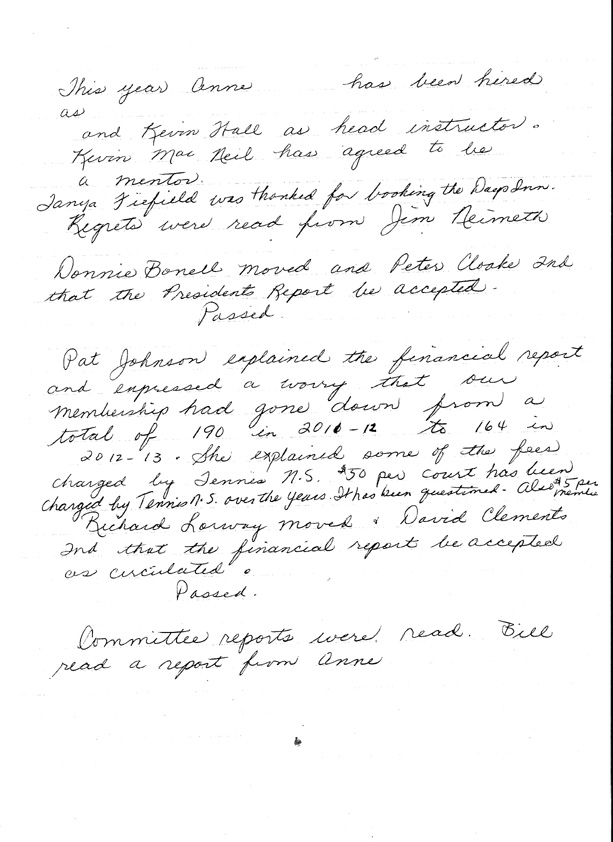 This year Anne has been hired
as
and Kevin Hall as head instructor.
Kevin Mac Neil has agreed to be
a mentor.
Tanya Fiefield was thanked for booking the Days Inn.
Regrets were read from Jim Neimeth
Donnie Bonell moved and Peter Cloake 2nd
that the Presidents Report be accepted.
Passed.
Pat Johnson explained the financial report
and expressed a worry that our
membership had gone down from a
total of 190 in 2011-12 to 164 in
2012-13. She explained some of the fees
charged by Tennis N.S. $50 per court has been
charged by Tennis N.S. over the years. It has been questioned. Also $5 per
member
Richard Lorway moved & David Clements
2nd that the financial report be accepted
as circulated.
Passed.
Committee reports were read. Bill
read a report from Anne